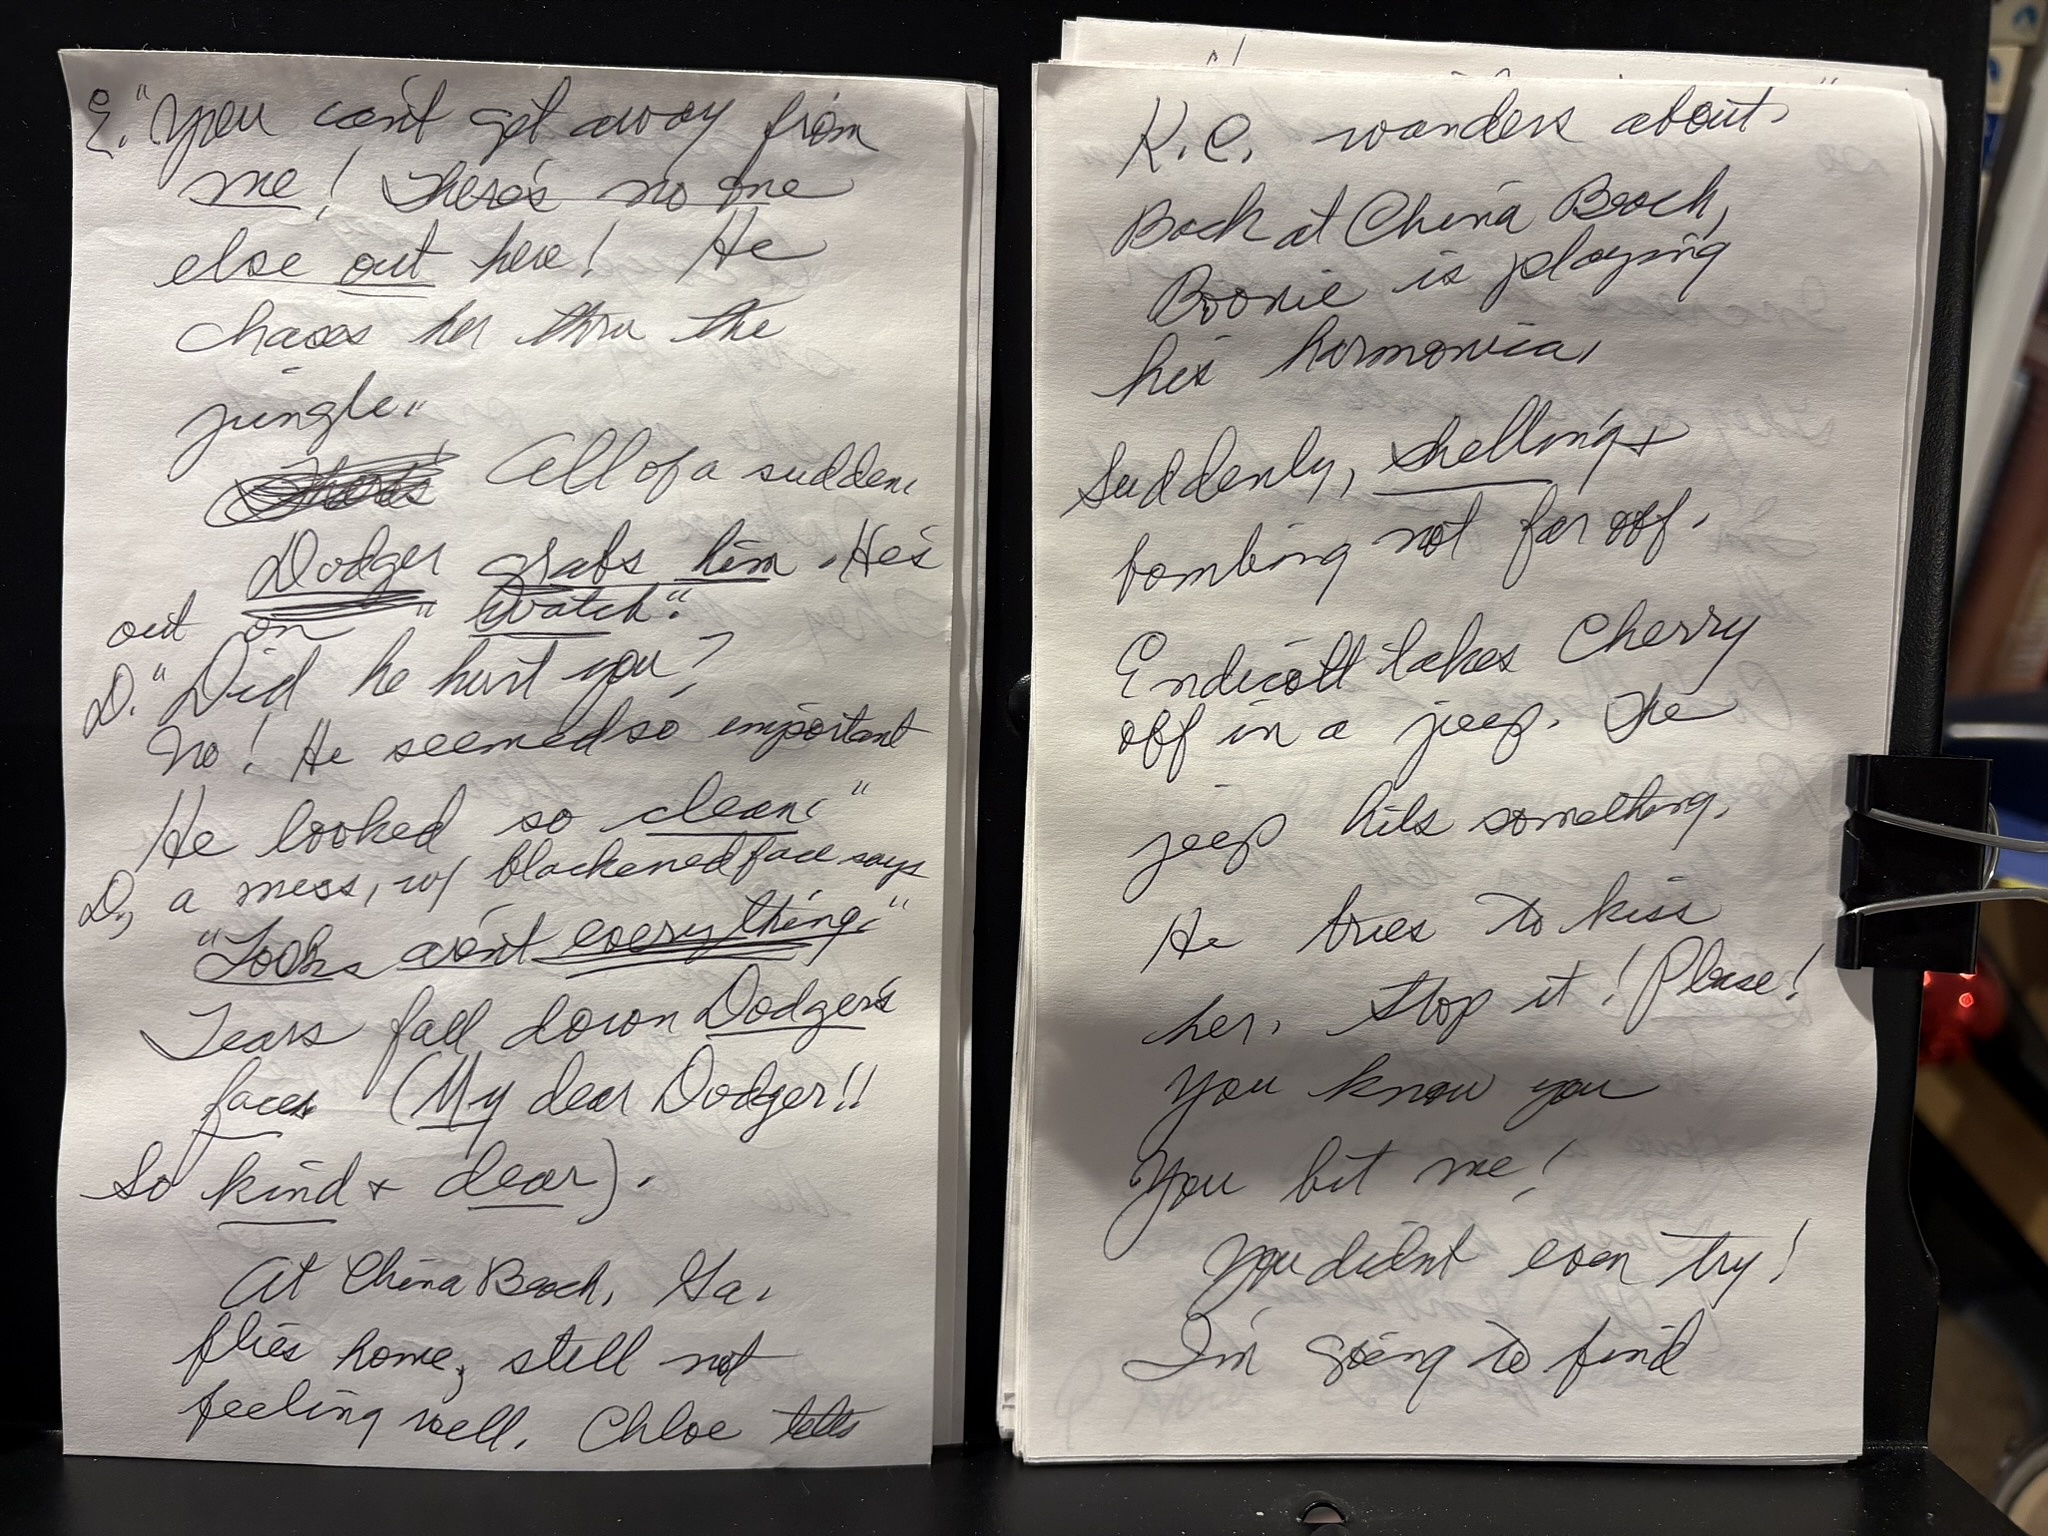 E. "You can't get away from
me! There's no one
else out here! He
chases her thru the
jingle."
All of a sudden,
Dodger grabs him. He's
out on "Watch."
D. "Did he hurt you?
No! He seemed so important
He looked so clean."
D., a mess, w/ blackened face says
"Looks aren't everything."
Tears fall down Dodger's
faces (My dear Dodger!!
So kind + dear).
At China Beach, Ga.
flies home, still not
feeling well. Chloe tells
K.C. wanders about.
Back at China Beach,
Boonie is playing
his harmonica.
Suddenly, shelling +
bombing not far off.
Endicott takes Cherry
off in a jeep. The
jeep hits something.
He tries to kiss
her. Stop it! Please!
You know you
You bit me!
You didn't even try!
I'm going to find